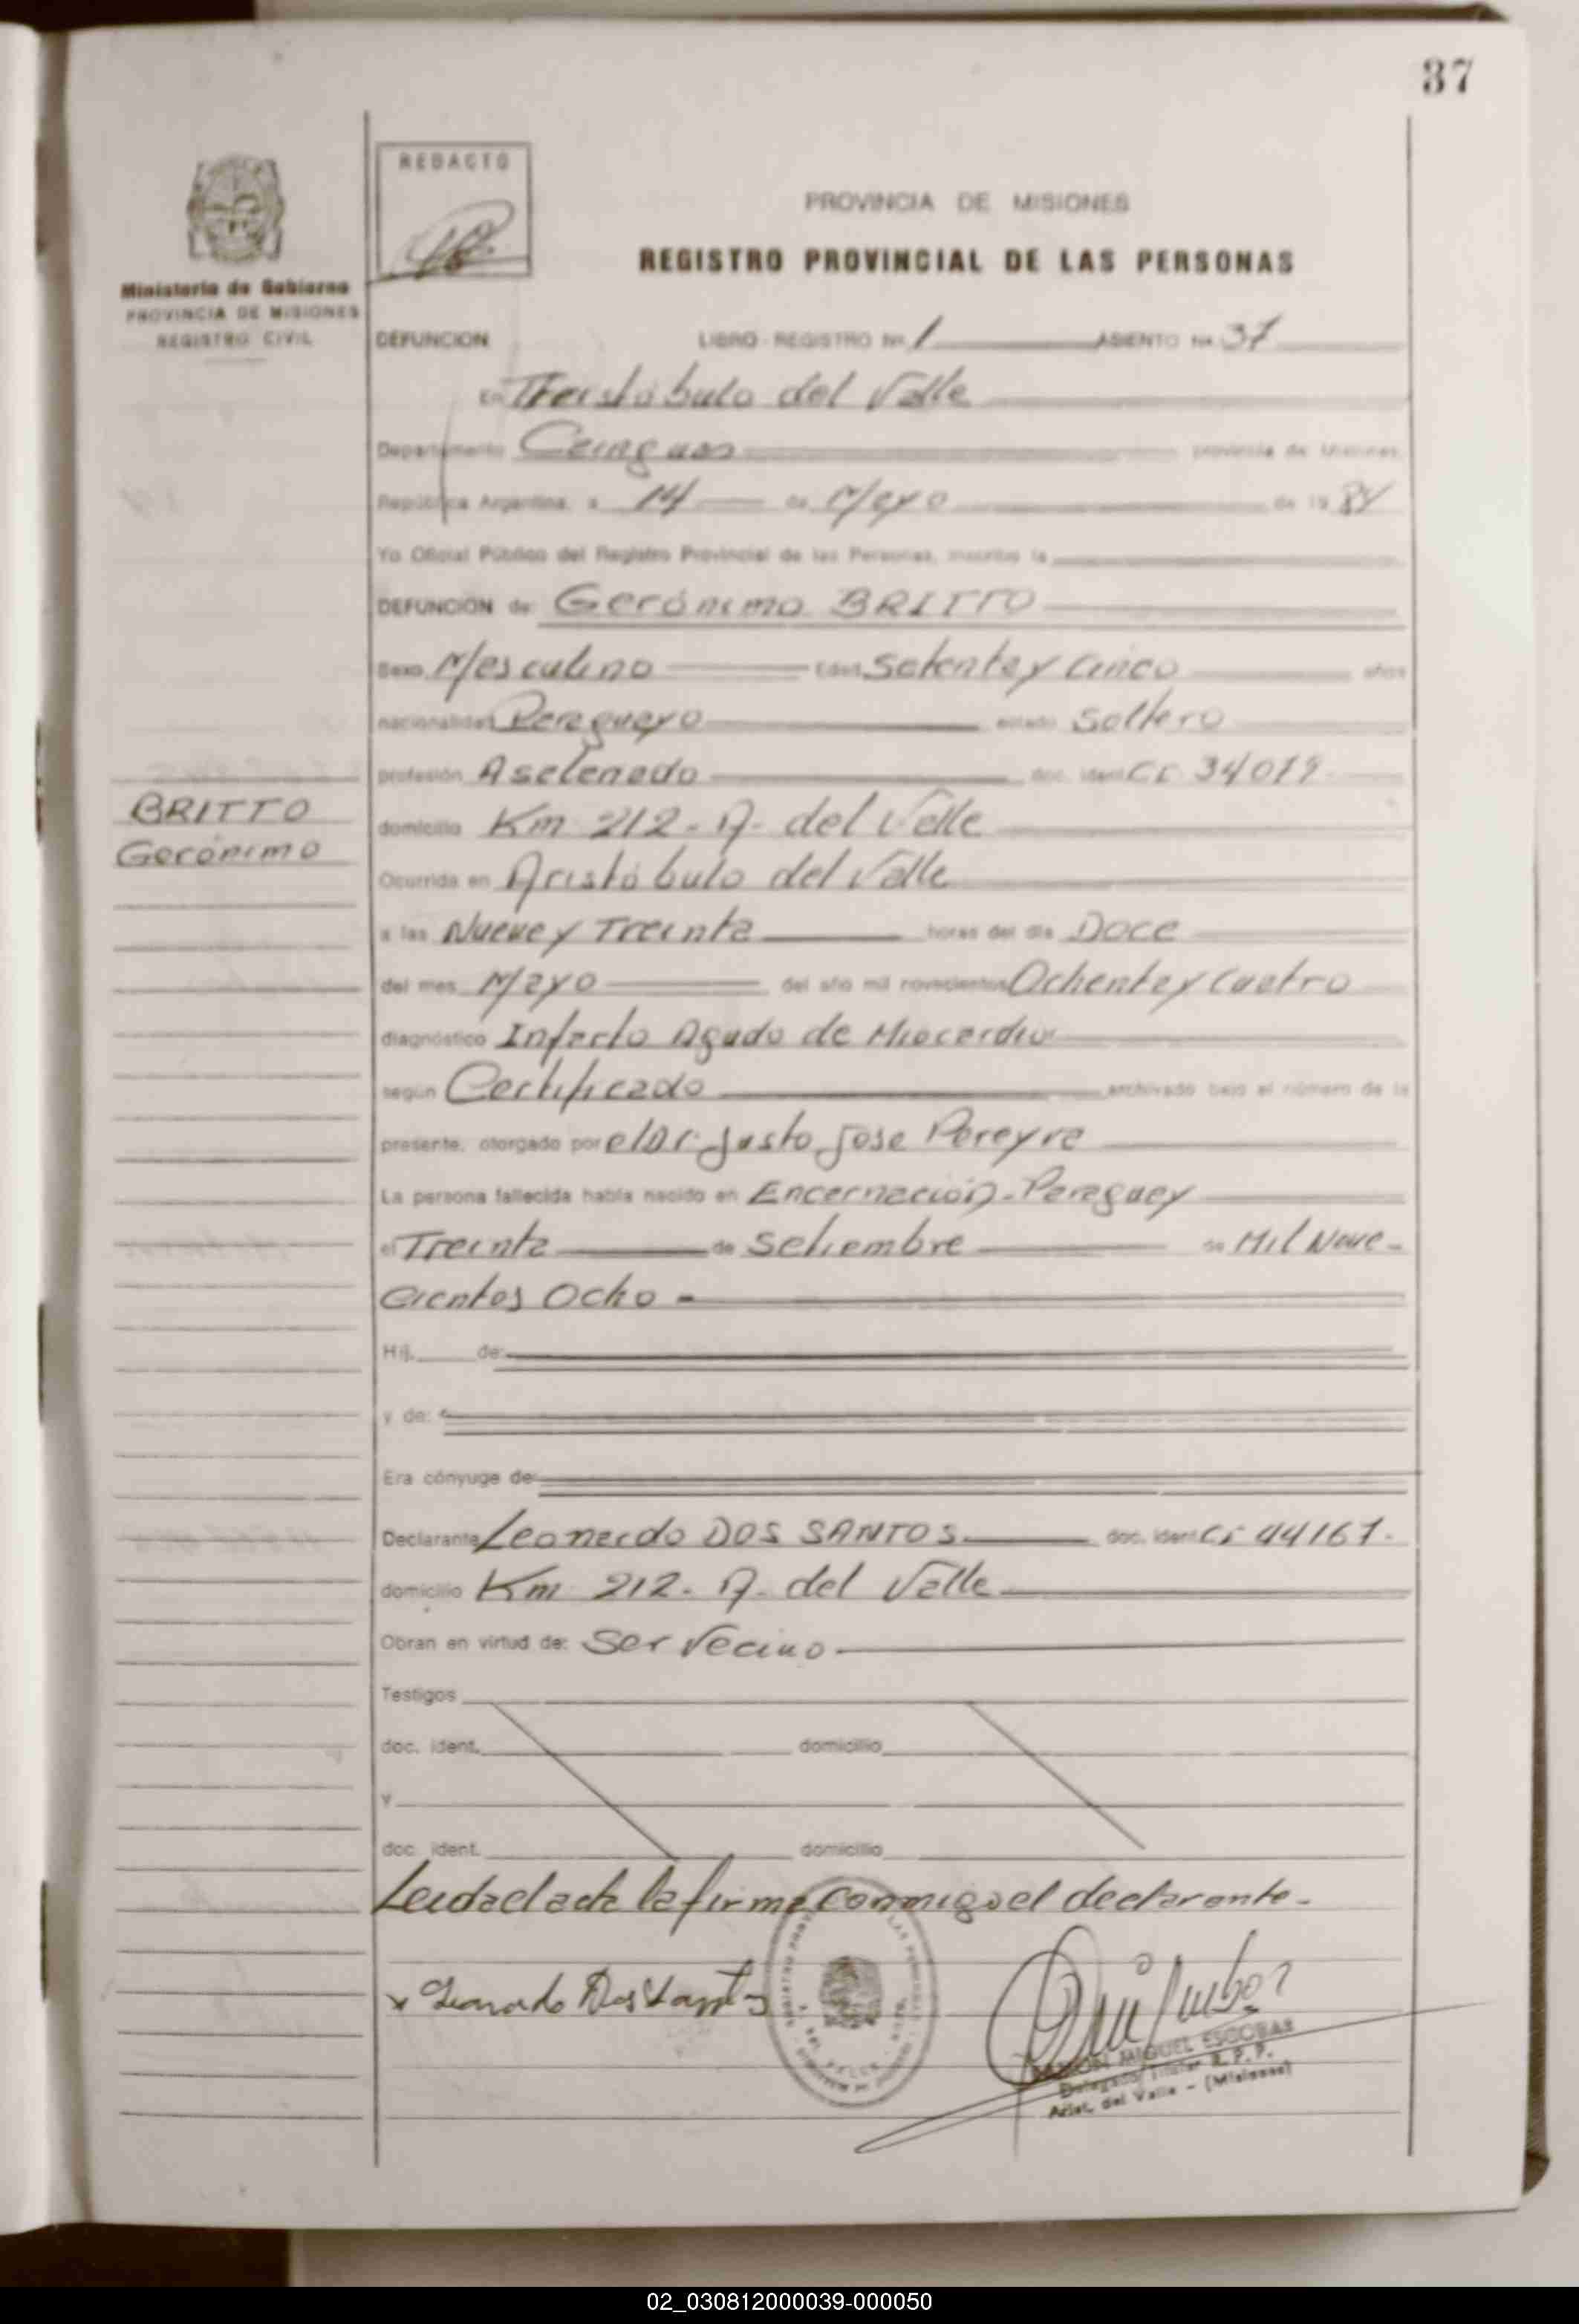 37
REDACTO
PROVINCIA DE MISIONES
REGISTRO PROVINCIAL DE LAS PERSONAS
Ministerio de Gobierno
PROVINCIA DE MISIONES
REGISTRO CIVIL
DEFUNCION LIBRO - REGISTRO No. 1 ASIENTO No. 37
En Aristóbulo del Valle
Departamento Cainguas provincia de Misiones,
República Argentina, a 14 de Mayo de 19 84
Yo Oficial Público del Registro Provincial de las Personas, inscribo la
DEFUNCION de: Gerónimo BRITTO
Sexo Masculino Edad Setenta y Cinco años
nacionalidad Paraguayo estado Soltero
profesión doc. ident. CI 34019
BRITTO
Gerónimo
domicilio Km 212 - A. del Valle
Ocurrida en Aristóbulo del Valle
a las Nueve y Treinta horas del día Doce
del mes Mayo del año mil novecientos Ochenta y Cuatro
diagnóstico Infarto Agudo de Miocardio
según Certificado archivado bajo el número de la
presente, otorgado por el Dr. Justo Jose Pereyra
La persona fallecida había nacido en Encarnación - Paraguay
el Treinta de Setiembre de Mil Nove-
cientos Ocho -
Hij. de:
y de:
Era cónyuge de:
Declarante Leonardo DOS SANTOS. doc. ident. CI 44167.
domicilio Km 212. A. del Valle
Obran en virtud de: Ser Vecino
Testigos
doc. ident. domicilio
Y
doc. ident. domicilio
Leida el acta la firma conmigo el declarante -
x Leonardo Dos Santos
MIGUEL ESCOBAR
Delegado Titular R. P. P.
Arist. del Valle - (Misiones)
02_030812000039-000050